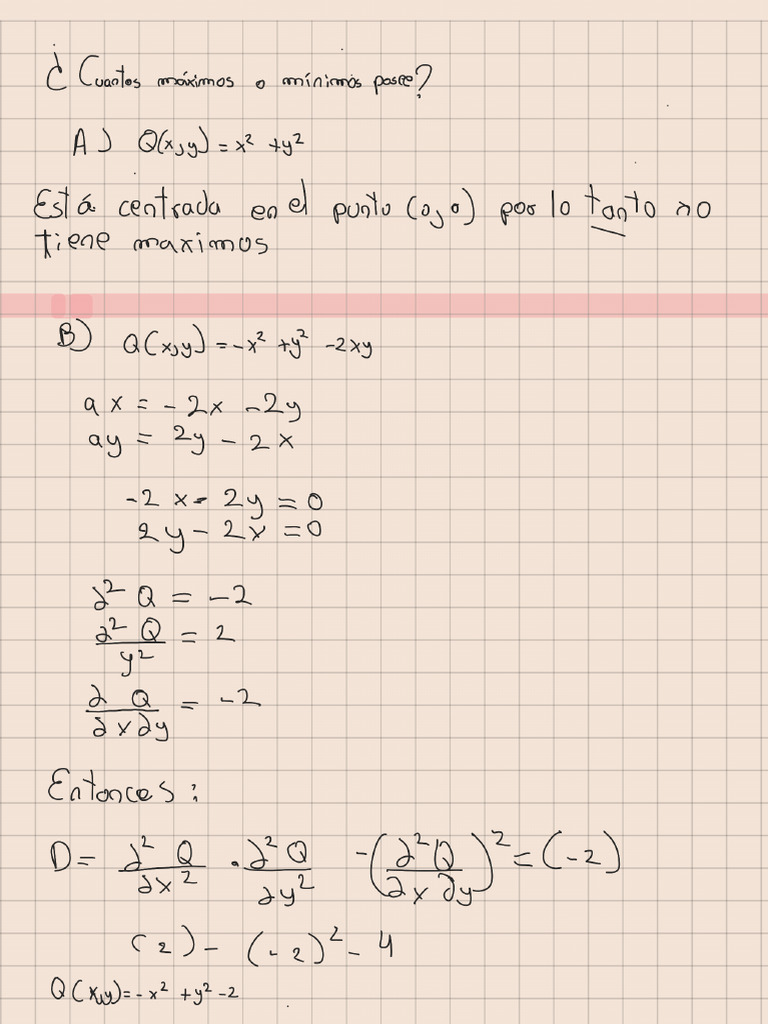 ¿Cuantos máximos o mínimos posee?
A) Q(x,y) = x² + y²
Está centrada en el punto (0,0) por lo tanto no
tiene maximos
B) Q(x,y) = -x² + y² - 2xy
ax = -2x - 2y
ay = 2y - 2x
-2x - 2y = 0
2y - 2x = 0
∂²Q = -2
∂²Q/y² = 2
∂Q/∂x∂y = -2
Entonces:
D = ∂²Q/∂x² · ∂²Q/∂y² - (∂²Q/∂x∂y)² = (-2)
(2) - (-2)² - 4
Q(x,y) = -x² + y² - 2